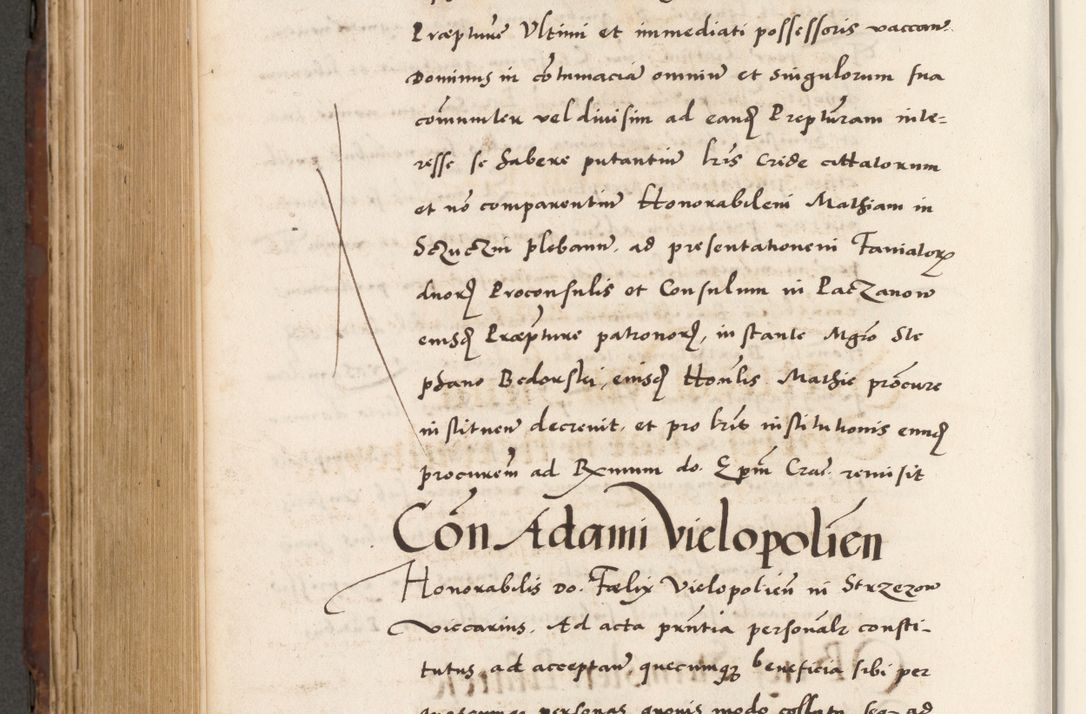 Præpture Ultimi et immediati possessoris vaccan
Dominus in cõtumacia omniũ et singulorum sua
com̃uniter vel divisim ad eandẽ Prepturam inte=
resse se habere putantiũ lr̃is Crede cittatorum
et nõ comparentiũ Honorabilem Mathiam in
Sczuczin plebanũ. ad presentationem Famatorꝝ
dnorũ Proconsulis et Consulum in Paczanow
eiusdẽ Præpture patronorũ, instante Mgro Ste
phano Bedorski, eiusdẽ Honlis Mathie procure
instituen̄ decrevit, et pro lr̃is institutionis eundẽ
procurem ad Rxmum do. Epm̃ Crac. remisit
Coñ Adami Vielopolieñ
Honorabilis Do. Fælix Vielopolieñ in Strzezow
Viccarius. Ad acta pr̃ntia personalr consti-
tutus, ad acceptan̄ quecumqꝫ beneficia sibi per
quascunqꝫ personas quovis modo collata seu ad